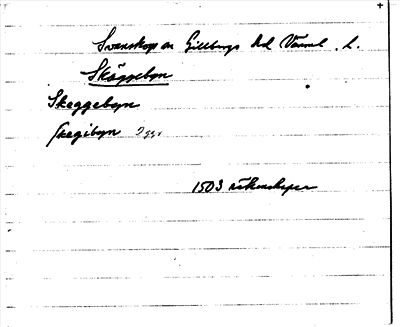 Svanskog sn Gillbergs hd Värml. l.
Skäggebyn
Skeggebyn
Skegibyn
1503 räkenskaper